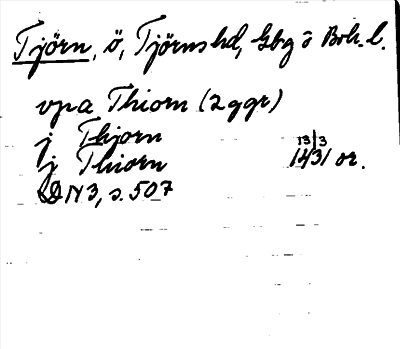 Tjörn, ö, Tjörns hd, Gbg o Boh. l.
vpa Thiorn (2 ggr)
j Thjorn
j Thiorn 13/3 1431 or.
DN 3, s. 507